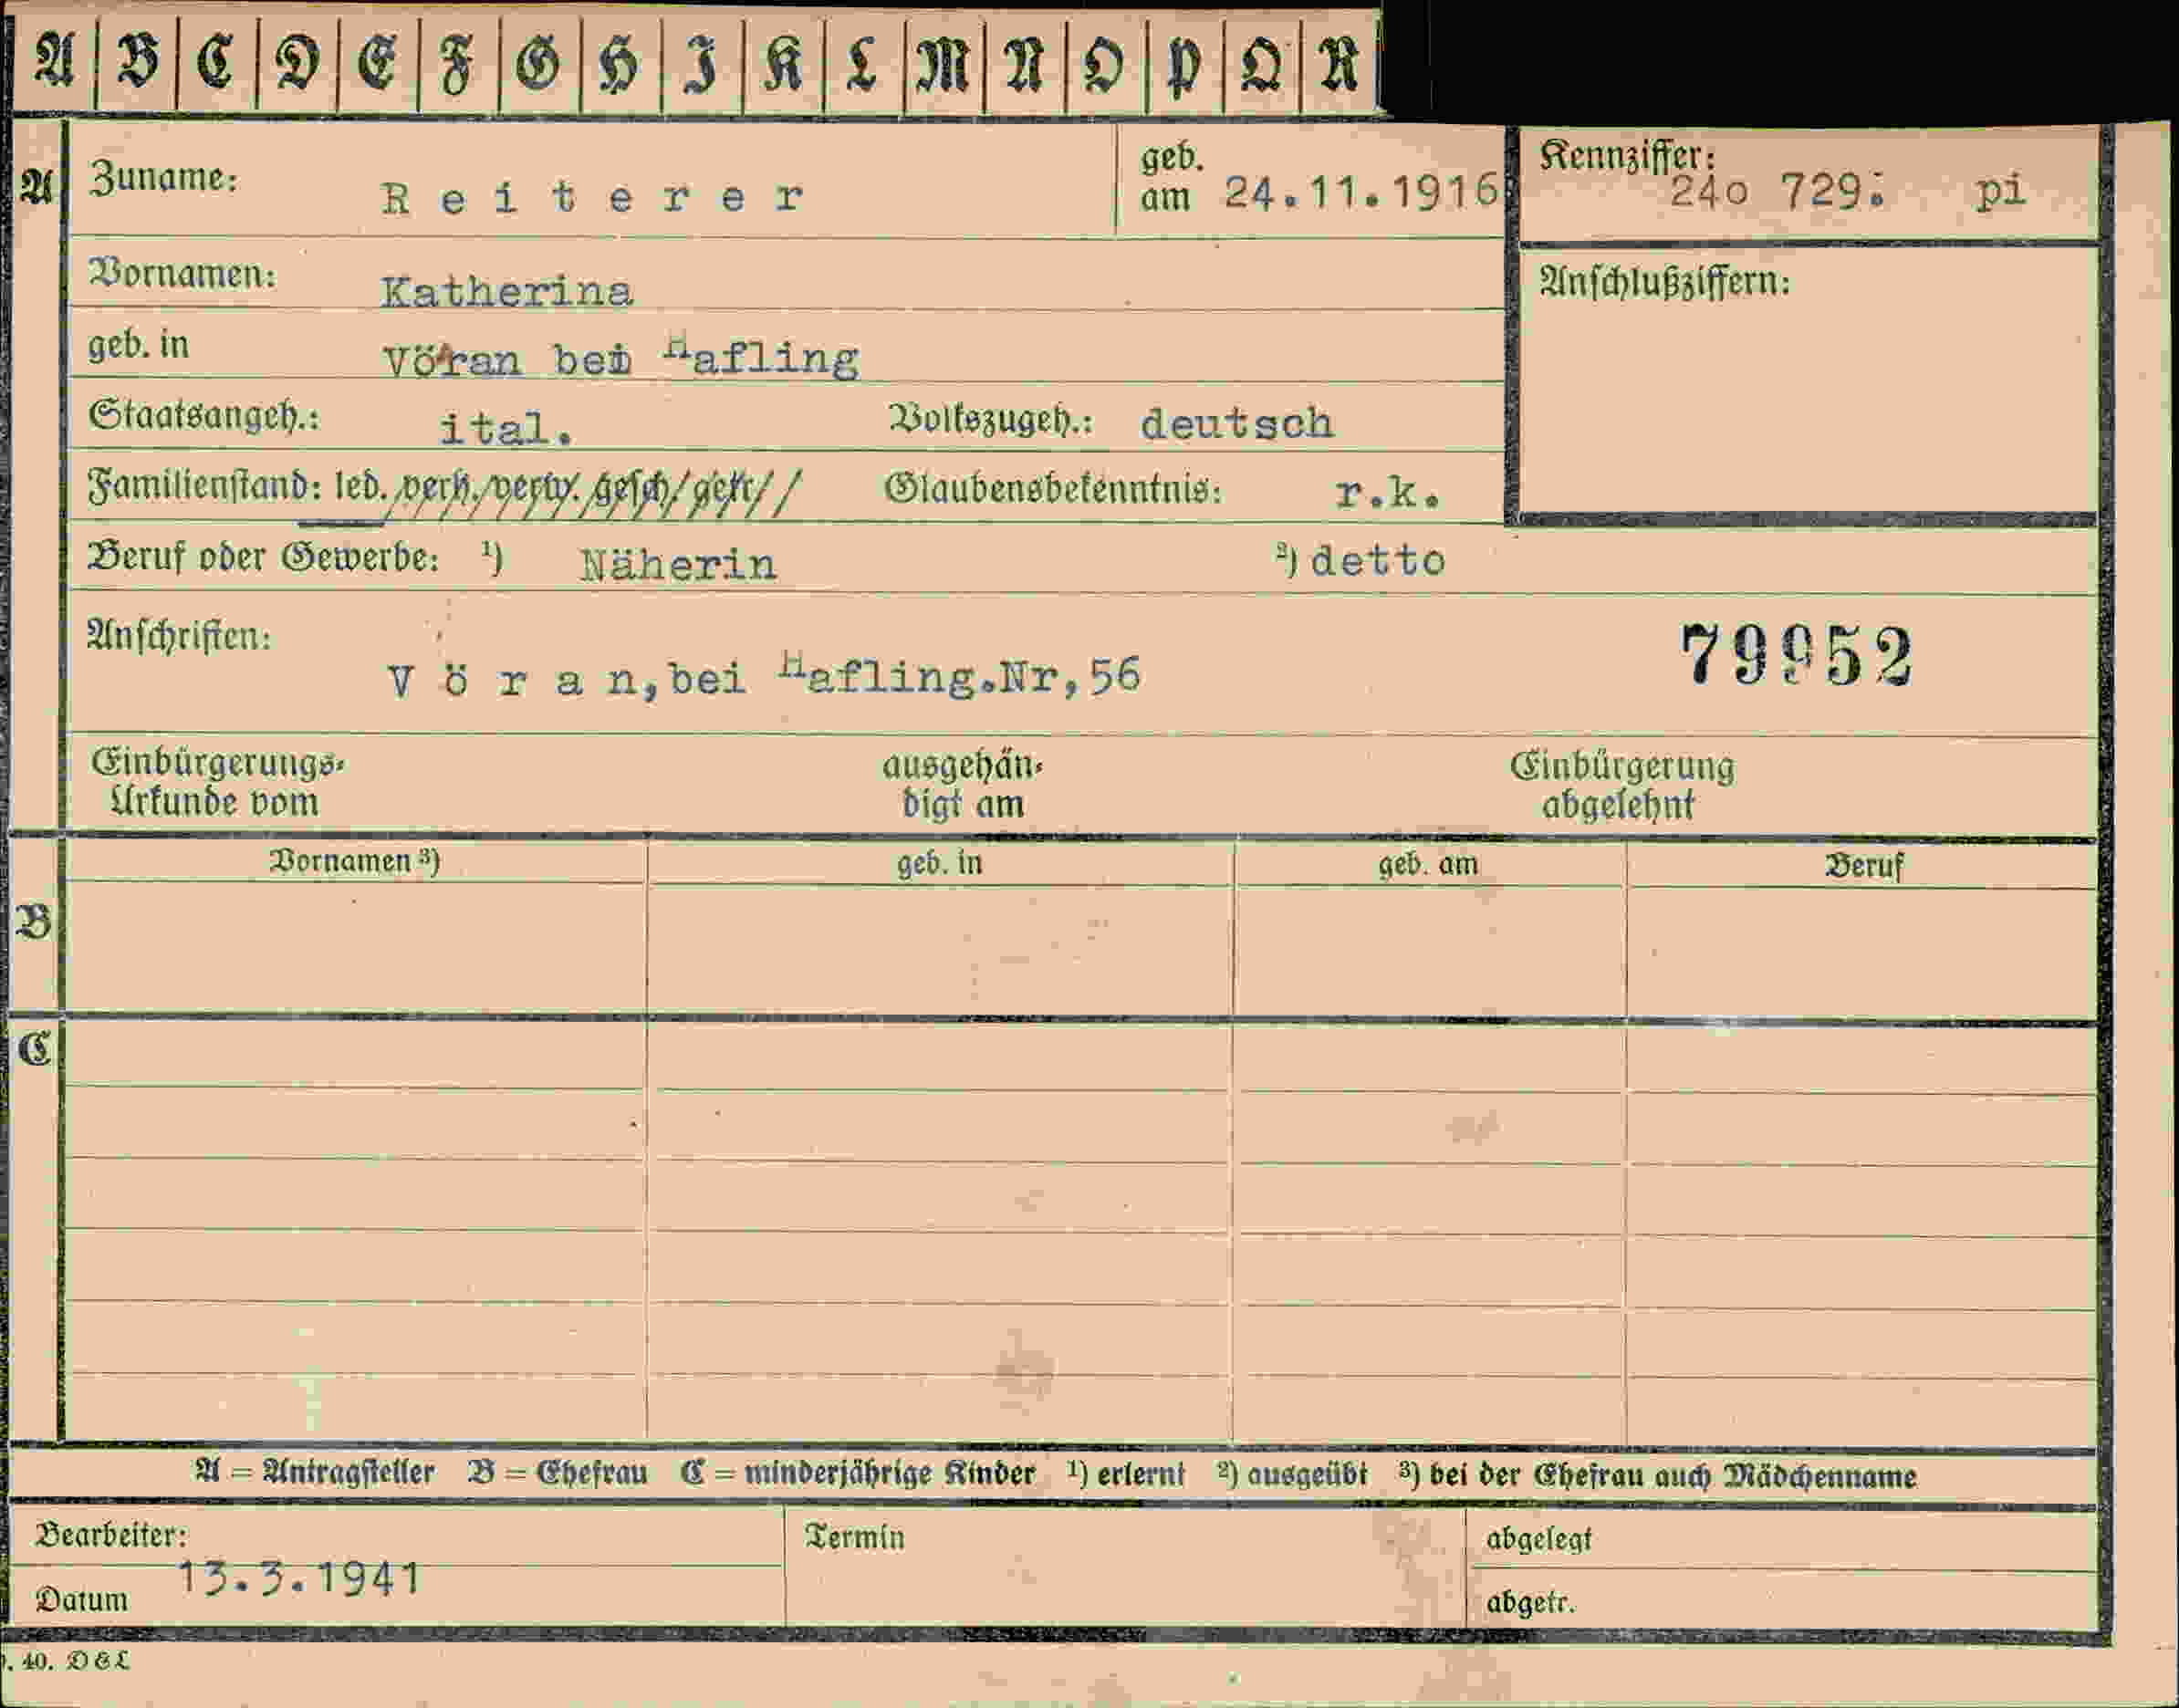 A B C D E F G H I K L M N O P Q R
A Zuname: Reiterer geb. am 24.11.1916 Kennziffer: 24o 729: pi
Vornamen: Katherina Anschlußziffern:
geb. in Vöran bei Hafling
Staatsangeh.: ital. Volkszugeh.: deutsch
Familienstand: led. verh. verw. gesch. getr. Glaubensbekenntnis: r.k.
Beruf oder Gewerbe: ¹) Näherin ²) detto
Anschriften: V ö r a n, bei Hafling.Nr,56 79952
Einbürgerungs- ausgehän- Einbürgerung
Urkunde vom digt am abgelehnt
Vornamen ³) geb. in geb. am Beruf
B
C
A = Antragsteller B = Ehefrau C = minderjährige Kinder ¹) erlernt ²) ausgeübt ³) bei der Ehefrau auch Mädchenname
Bearbeiter: Termin abgelegt
Datum 13.3.1941 abgetr.
. 40. D & L